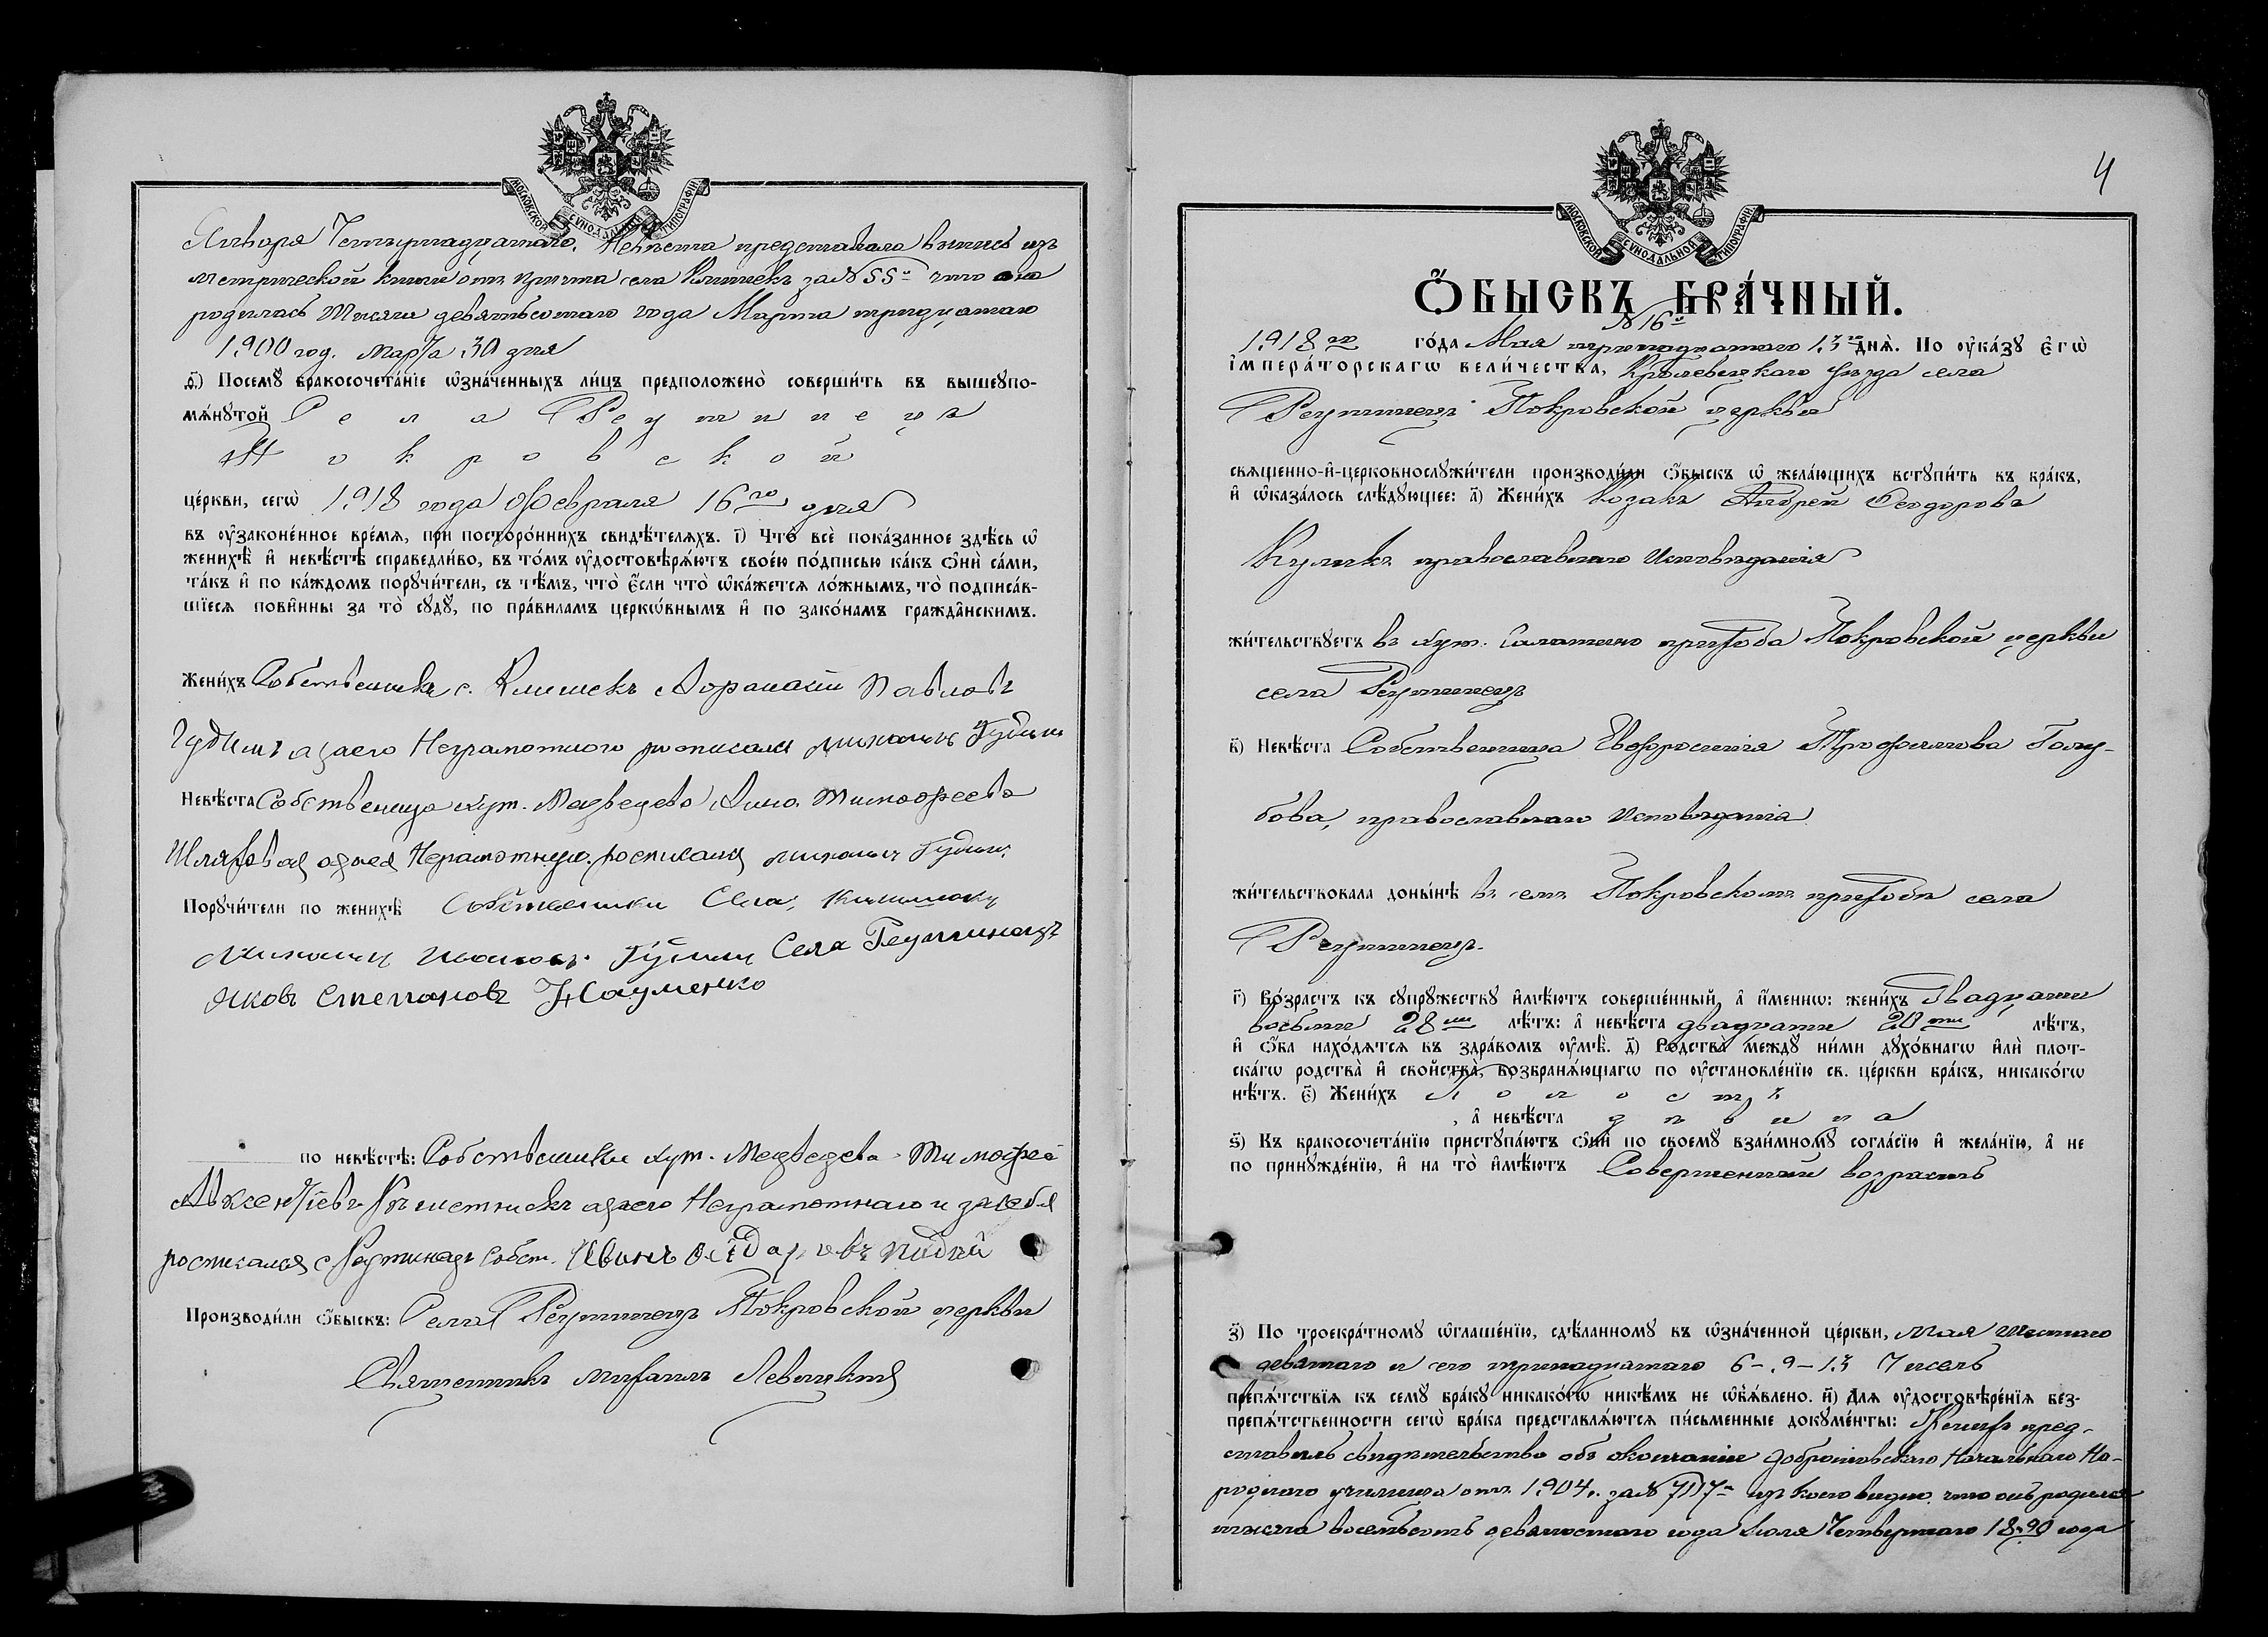 МОСКОВСКОЙ СѴНОДАЛЬНОЙ ТИПОГРАФІИ.
Января Четырнадцатого. Невѣста представила выпись изъ
метрической книги отъ причта села Клишекъ за № 55м что она
родилась Тысяча девятьсотаго года Марта тридцатаго
1900 год. Марта 30 дня
д҃) Посемꙋ бракосочета́нїе ѡ҆зна́ченныхъ ли́цъ предположено̀ соверши́ть въ вышеꙋпо-
мѧ́нꙋтой Села Реутинецъ
Покровской
це́ркви, сегѡ̀ 1918 года Февраля 16го дня
въ ᲂу҆законе́нное вре́мѧ, при посторо́ннихъ свидѣ́телѧхъ. і҃) Что̀ всѐ пока́занное здѣ́сь ѡ҆
женихѣ̀ и҆ невѣ́стѣ справедли́во, въ то́мъ ᲂу҆достовѣрѧ́ютъ свое́ю по́дписью ка́къ ѻ҆нѝ са́ми,
та́къ и҆ по ка́ждомъ порꙋчи́тели, съ тѣ́мъ, что̀ є҆́сли что̀ ѡ҆ка́жетсѧ ло́жнымъ, то̀ подписа́в-
шїесѧ пови́нны за то̀ сꙋдꙋ̀, по пра́виламъ церко́внымъ и҆ по зако́намъ гражда̂нскимъ.
Жени́хъ Собственникъ с. Клишекъ Афанасій Павловъ
Гудимъ а за его Неграмотного росписался Гудимъ
Невѣ́ста Собственица хут. Медведева Анна Тимофеева
Шляховая а за нея Неграмотную росписался Гудимъ
Порꙋчи́тели по женихѣ̀ Собственики Села
Гудим Села Реутинецъ
Яковъ Степановъ Науменко
по невѣ́стѣ: Собственики хут. Медведева Тимофей
Авксентіевъ а за его Неграмотнаго и за себя
росписался с Реутинецъ Собст. Иванъ
Производи́ли ѻ҆́быскъ: Села Реутинецъ Покровской церкви
Священникъ Михаилъ Левицкій
4
МОСКОВСКОЙ СѴНОДАЛЬНОЙ ТИПОГРАФІИ.
Ѻ҆́БЫСКЪ БРА́ЧНЫЙ.
№ 16й
1918го го́да Мая тринадцатаго 13го днѧ̀. По ᲂу҆ка́зꙋ є҆гѡ̀
і҆мпера́торскагѡ вели́чества, Кролевецкаго уѣзда села
Реутинецъ Покровской церкви
свѧще́нно-и҆-церковнослꙋжи́тели производи́ли ѻ҆́быскъ ѡ҆ жела́ющихъ встꙋпи́ть въ бра́къ,
и҆ ѡ҆каза́лось слѣ́дꙋющее: а҃) Жени́хъ козакъ Андрей Феодоровъ
Куликъ православнаго исповѣданія
жи́тельствꙋетъ въ хут. Саматино прихода Покровской церкви
села Реутинецъ
в҃) Невѣ́ста Собственница Евфросинія Трофимова Голу-
бова, православнаго исповѣданія
жи́тельствовала доны́нѣ въ семъ Покровскомъ приходѣ села
Реутинецъ.
г҃) Во́зрастъ къ сꙋпрꙋжествꙋ и҆мѣ́ютъ соверше́нный, а҆ и҆́менно: жени́хъ двадцати
восьми 28ми лѣ́тъ: а҆ невѣ́ста двадцати 20ти лѣ́тъ,
и҆ ѻ҆́ба нахо́дѧтсѧ въ здра́вомъ ᲂу҆мѣ̀. д҃) Родства̀ междꙋ ни́ми дꙋхо́внагѡ и҆лѝ плот-
ска́гѡ родства̀ и҆ сво́йства̀, возбранѧ́ющагѡ по ᲂу҆становле́нїю св. це́ркви бра́къ, никако́гѡ
нѣ́тъ. є҃) Жени́хъ холостъ
, а҆ невѣ́ста дѣвица
ѕ҃) Къ бракосочета́нїю пристꙋпа́ютъ ѻ҆нѝ по своемꙋ̀ взаи́мномꙋ согла́сїю и҆ жела́нїю, а҆ не
по принꙋжде́нїю, и҆ на то̀ и҆мѣ́ютъ Совершенный возрастъ
з҃) По троекра́тномꙋ ѡ҆глаше́нїю, сдѣ́ланномꙋ въ ѡ҆зна́ченной це́ркви, Мая шестаго
девятаго и сего тринадцатаго 6-9-13 Чиселъ
препѧ́тствїѧ къ семꙋ̀ бра́кꙋ никако́гѡ никѣ́мъ не ѡ҆б̾ѧ́влено. и҃) Длѧ ᲂу҆достовѣре́нїѧ без-
препѧ́тственности сегѡ̀ бра́ка представлѧ́ютсѧ пи́сьменные докꙋме́нты: Женихъ пред-
ставилъ свидѣтельство объ окончаніи Добротовскаго Начальнаго На-
роднаго училища отъ 1904г. за № изъ коего видно, что онъ родился
тысяча восемьсотъ девяностаго года Іюля Четвертаго 1890 года